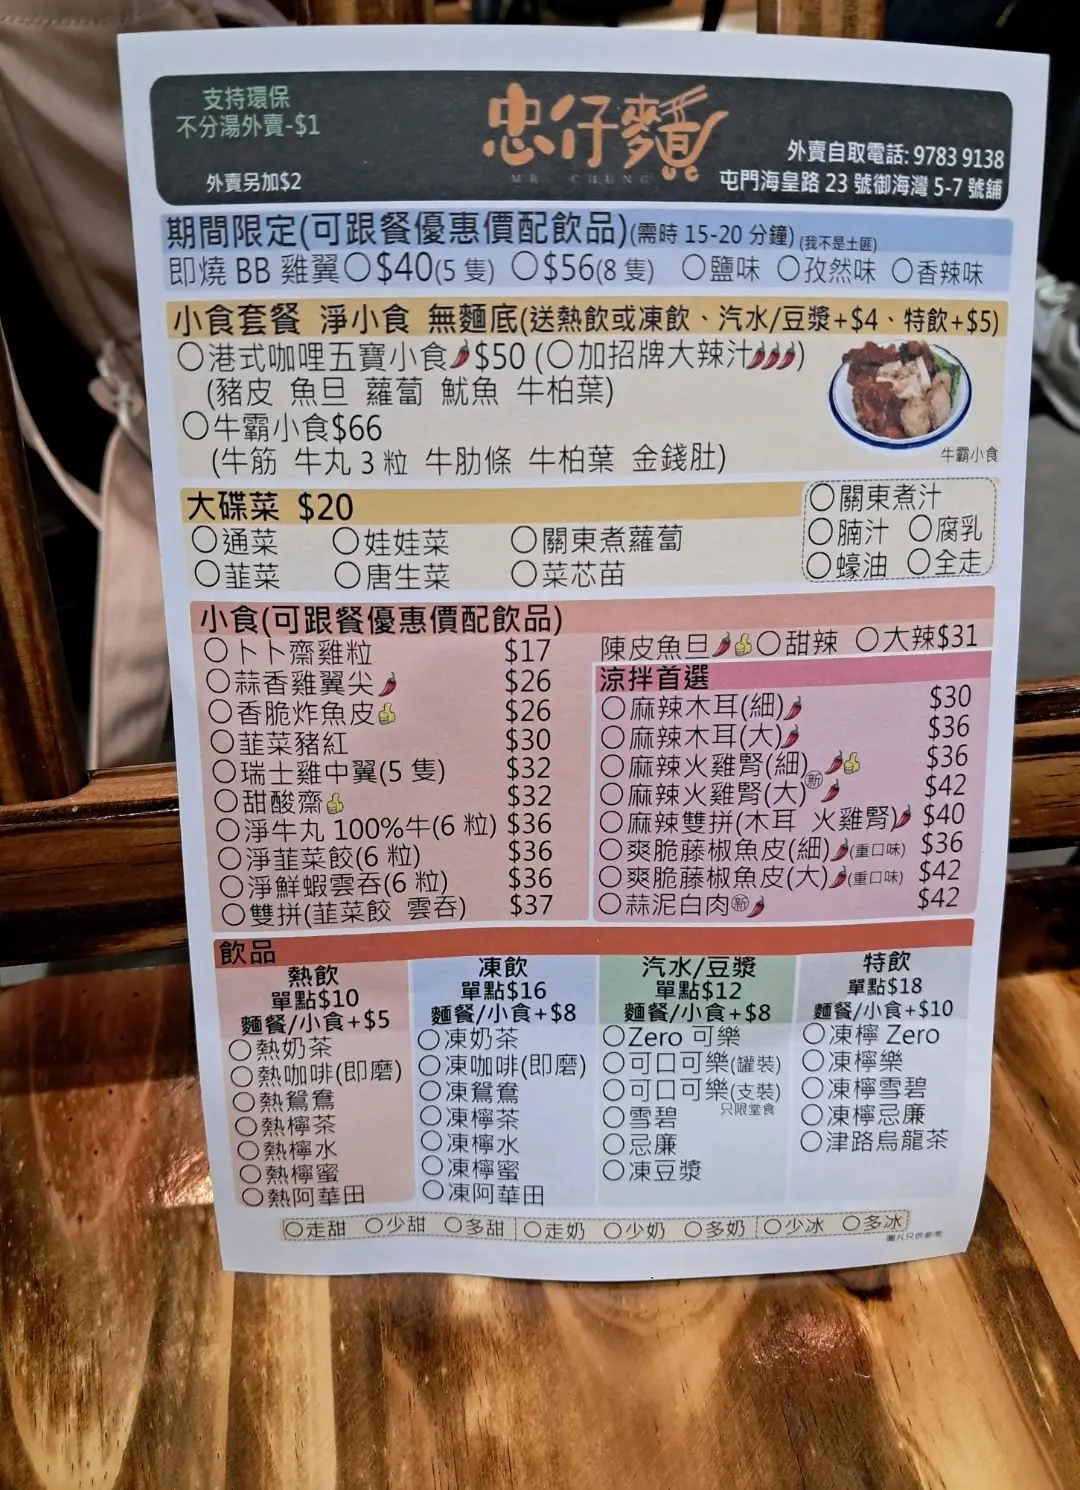 支持環保
不分湯外賣-$1
外賣另加$2
忠仔麵
MR. CHUNG
外賣自取電話: 9783 9138
屯門海皇路 23 號御海灣 5-7 號舖
期間限定(可跟餐優惠價配飲品)(需時 15-20 分鐘) (我不是土匪)
即燒 BB 雞翼○$40(5 隻) ○$56(8 隻) ○鹽味 ○孜然味 ○香辣味
小食套餐 淨小食 無麵底(送熱飲或凍飲、汽水/豆漿+$4、特飲+$5)
○港式咖哩五寶小食🌶$50 (○加招牌大辣汁🌶🌶🌶)
(豬皮 魚旦 蘿蔔 魷魚 牛柏葉)
○牛霸小食$66
(牛筋 牛丸 3 粒 牛肋條 牛柏葉 金錢肚)
牛霸小食
大碟菜 $20
○通菜 ○娃娃菜 ○關東煮蘿蔔
○韮菜 ○唐生菜 ○菜芯苗
○關東煮汁
○腩汁 ○腐乳
○蠔油 ○全走
小食(可跟餐優惠價配飲品)
○卜卜齋雞粒 $17
○蒜香雞翼尖🌶 $26
○香脆炸魚皮👍 $26
○韮菜豬紅 $30
○瑞士雞中翼(5 隻) $32
○甜酸齋👍 $32
○淨牛丸 100%牛(6 粒) $36
○淨韮菜餃(6 粒) $36
○淨鮮蝦雲吞(6 粒) $36
○雙拼(韮菜餃 雲吞) $37
陳皮魚旦🌶👍○甜辣 ○大辣$31
涼拌首選
○麻辣木耳(細)🌶 $30
○麻辣木耳(大)🌶 $36
○麻辣火雞腎(細)🌶👍 $36
○麻辣火雞腎(大)新🌶 $42
○麻辣雙拼(木耳 火雞腎)🌶 $40
○爽脆藤椒魚皮(細)🌶(重口味) $36
○爽脆藤椒魚皮(大)🌶(重口味) $42
○蒜泥白肉新🌶 $42
飲品
熱飲
單點$10
麵餐/小食+$5
○熱奶茶
○熱咖啡(即磨)
○熱鴛鴦
○熱檸茶
○熱檸水
○熱檸蜜
○熱阿華田
凍飲
單點$16
麵餐/小食+$8
○凍奶茶
○凍咖啡(即磨)
○凍鴛鴦
○凍檸茶
○凍檸水
○凍檸蜜
○凍阿華田
汽水/豆漿
單點$12
麵餐/小食+$8
○Zero 可樂
○可口可樂(罐裝)
○可口可樂(支裝)
只限堂食
○雪碧
○忌廉
○凍豆漿
特飲
單點$18
麵餐/小食+$10
○凍檸 Zero
○凍檸樂
○凍檸雪碧
○凍檸忌廉
○津路烏龍茶
○走甜 ○少甜 ○多甜 ○走奶 ○少奶 ○多奶 ○少冰 ○多冰
圖片只供參考